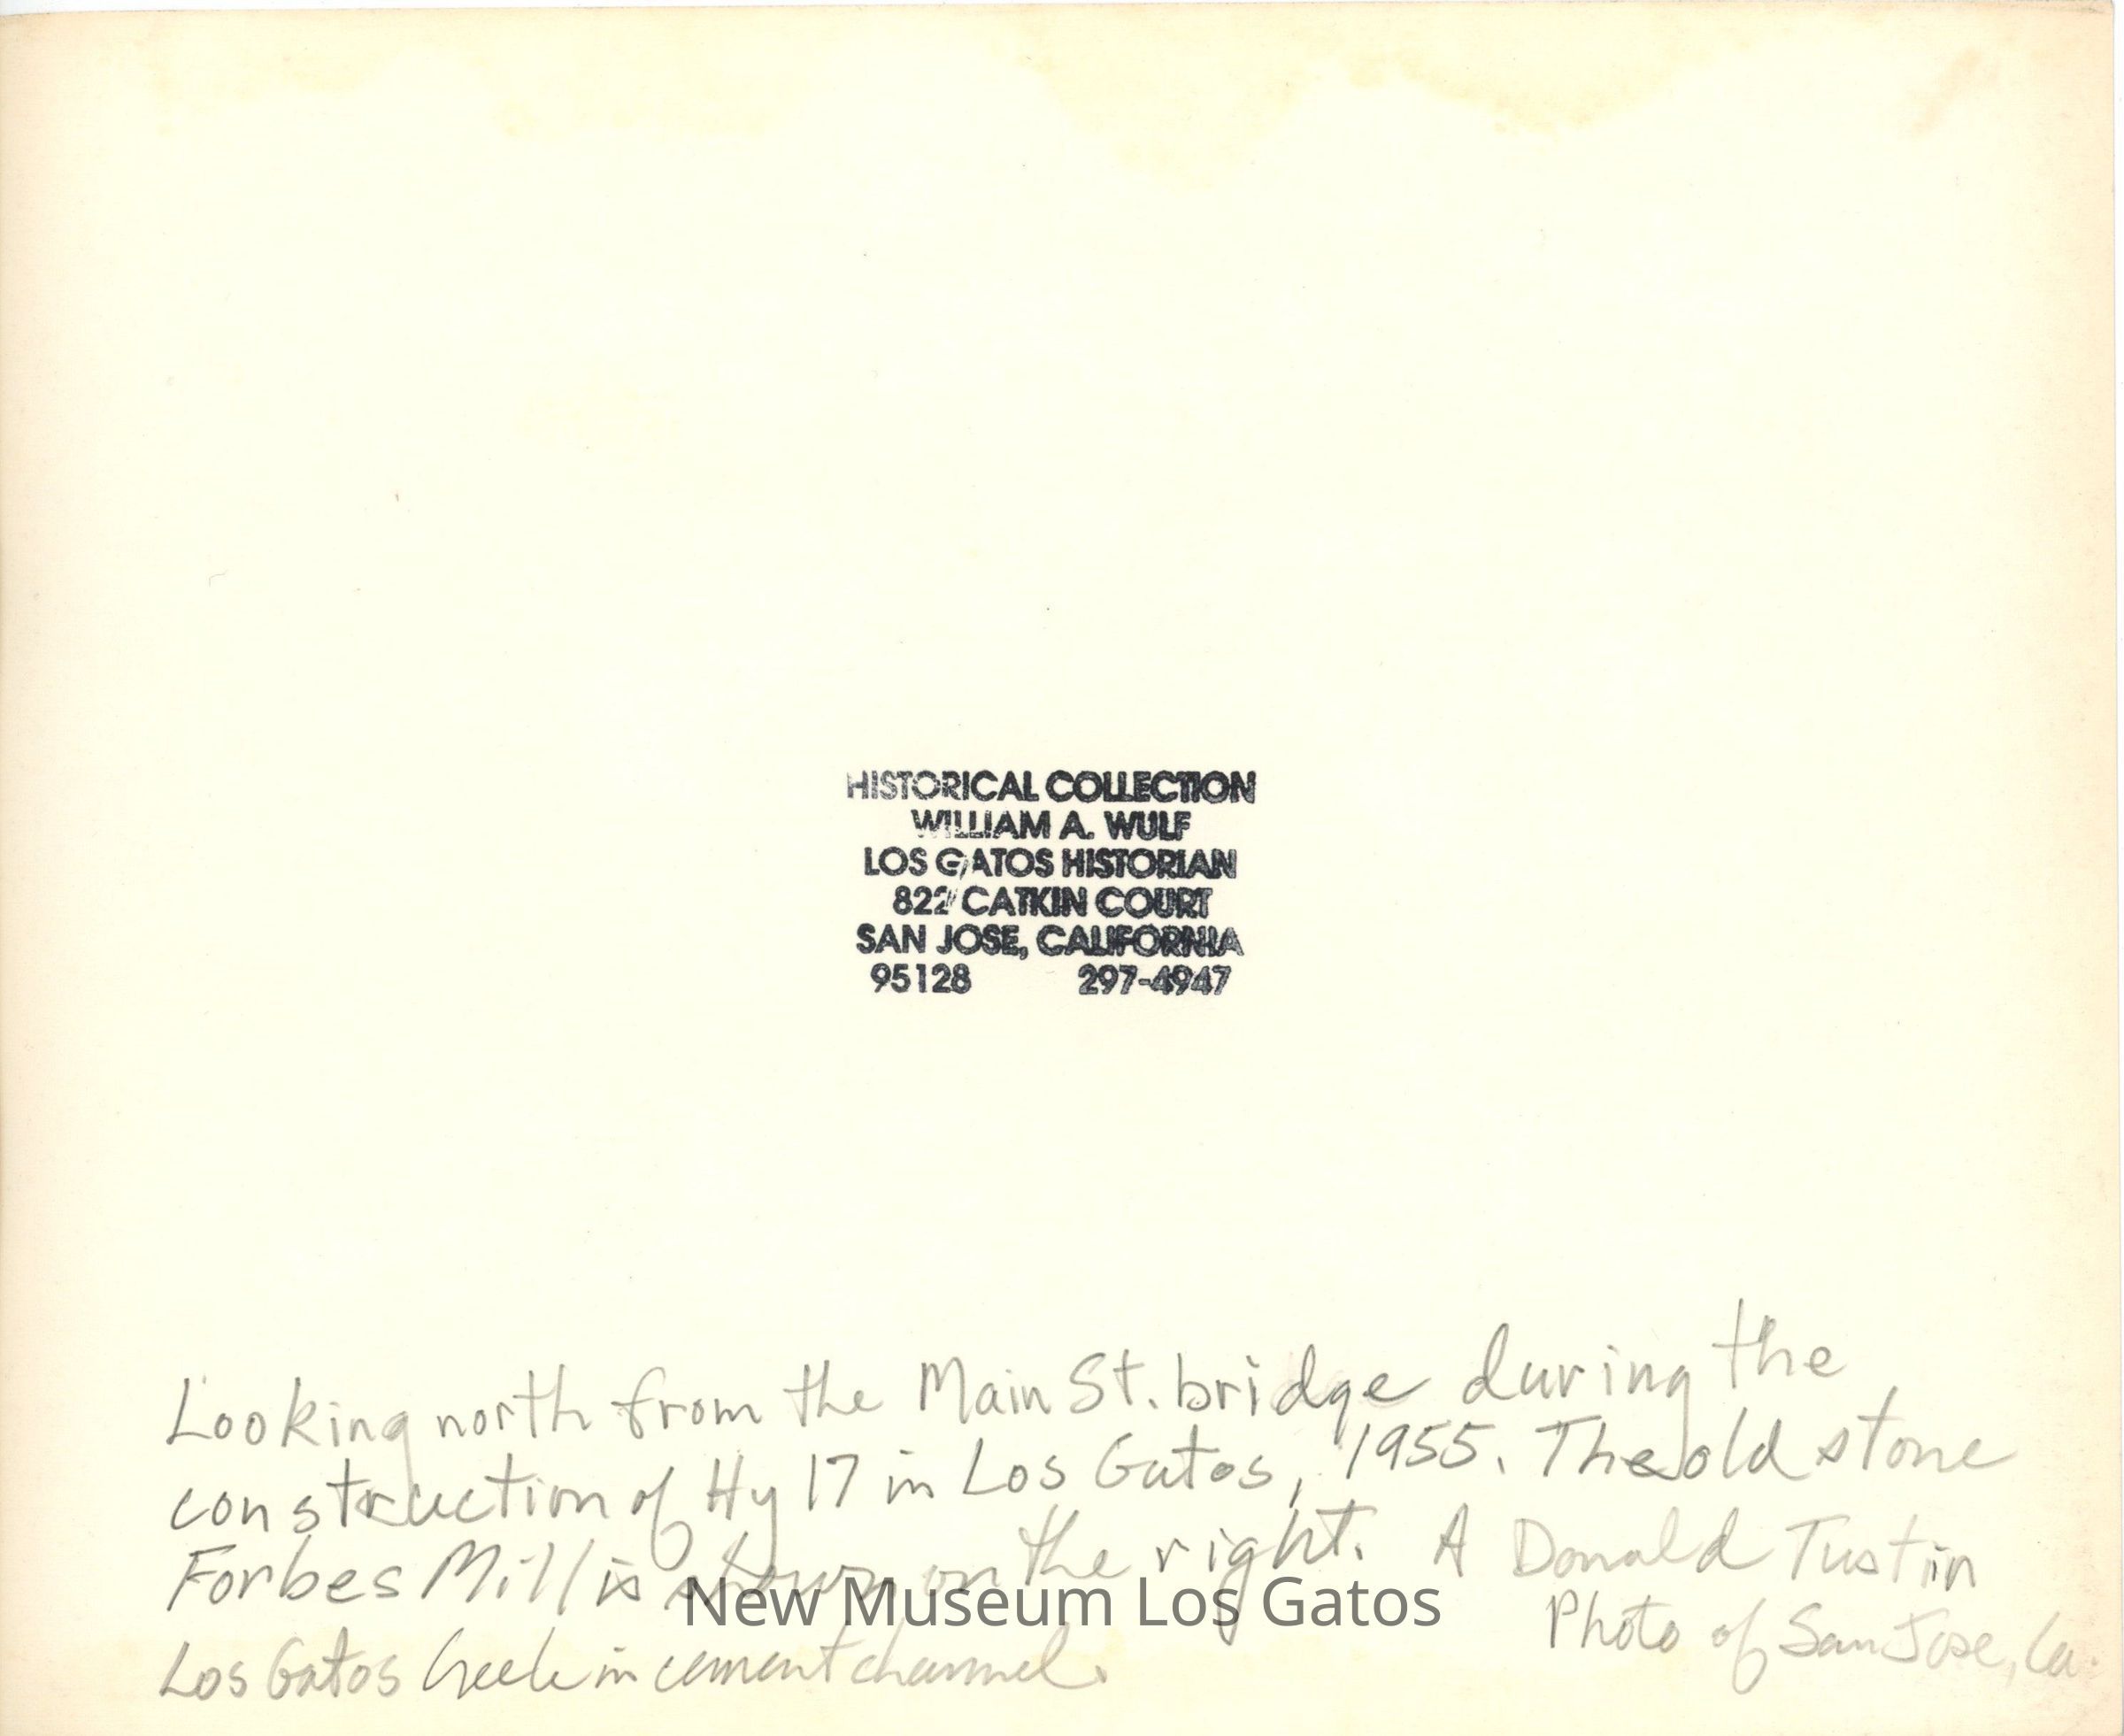 HISTORICAL COLLECTION
WILLIAM A. WULF
LOS GATOS HISTORIAN
822 CATKIN COURT
SAN JOSE, CALIFORNIA
95128 297-4947
Looking north from the Main St. bridge during the
construction of Hy 17 in Los Gatos, 1955. The old stone
Forbes Mill is shown on the right. A Donald Tustin
Photo of San Jose, Ca.
Los Gatos Creek in cement channel.
New Museum Los Gatos